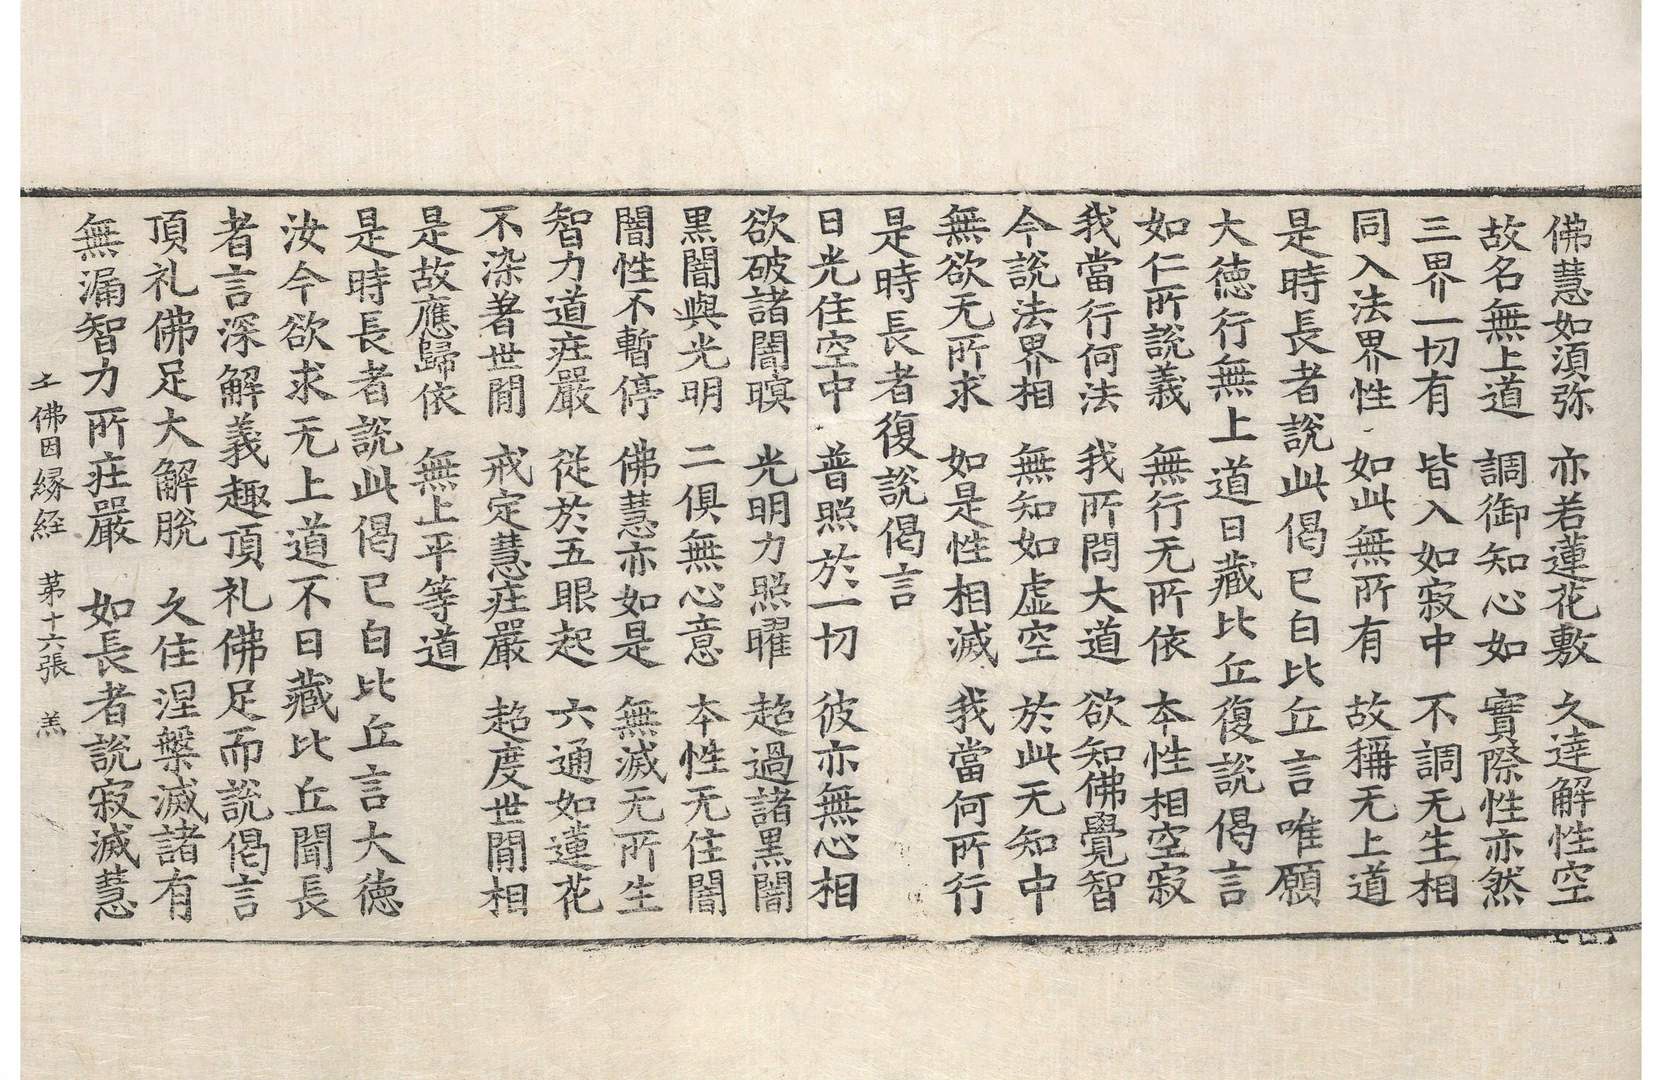 佛慧如須弥 亦若蓮花敷 久達解性空
故名無上道 調御知心如 實際性亦然
三界一切有 皆入如寂中 不調无生相
同入法界性 如此無所有 故稱无上道
是時長者說此偈已白比丘言唯願
大德行無上道日藏比丘復說偈言
如仁所說義 無行无所依 本性相空寂
我當行何法 我所問大道 欲知佛覺智
今說法界相 無知如虛空 於此无知中
無欲无所求 如是性相滅 我當何所行
是時長者復說偈言
日光住空中 普照於一切 彼亦無心相
欲破諸闇暝 光明力照曜 超過諸黑闇
黑闇與光明 二俱無心意 本性无住闇
闇性不暫停 佛慧亦如是 無滅无所生
智力道莊嚴 從於五眼起 六通如蓮花
不染著世間 戒定慧莊嚴 超度世間相
是故應歸依 無上平等道
是時長者說此偈已白比丘言大德
汝今欲求无上道不日藏比丘聞長
者言深解義趣頂礼佛足而說偈言
頂礼佛足大解脫 久住涅槃滅諸有
無漏智力所莊嚴 如長者說寂滅慧
千佛因緣経 第十六張 羔